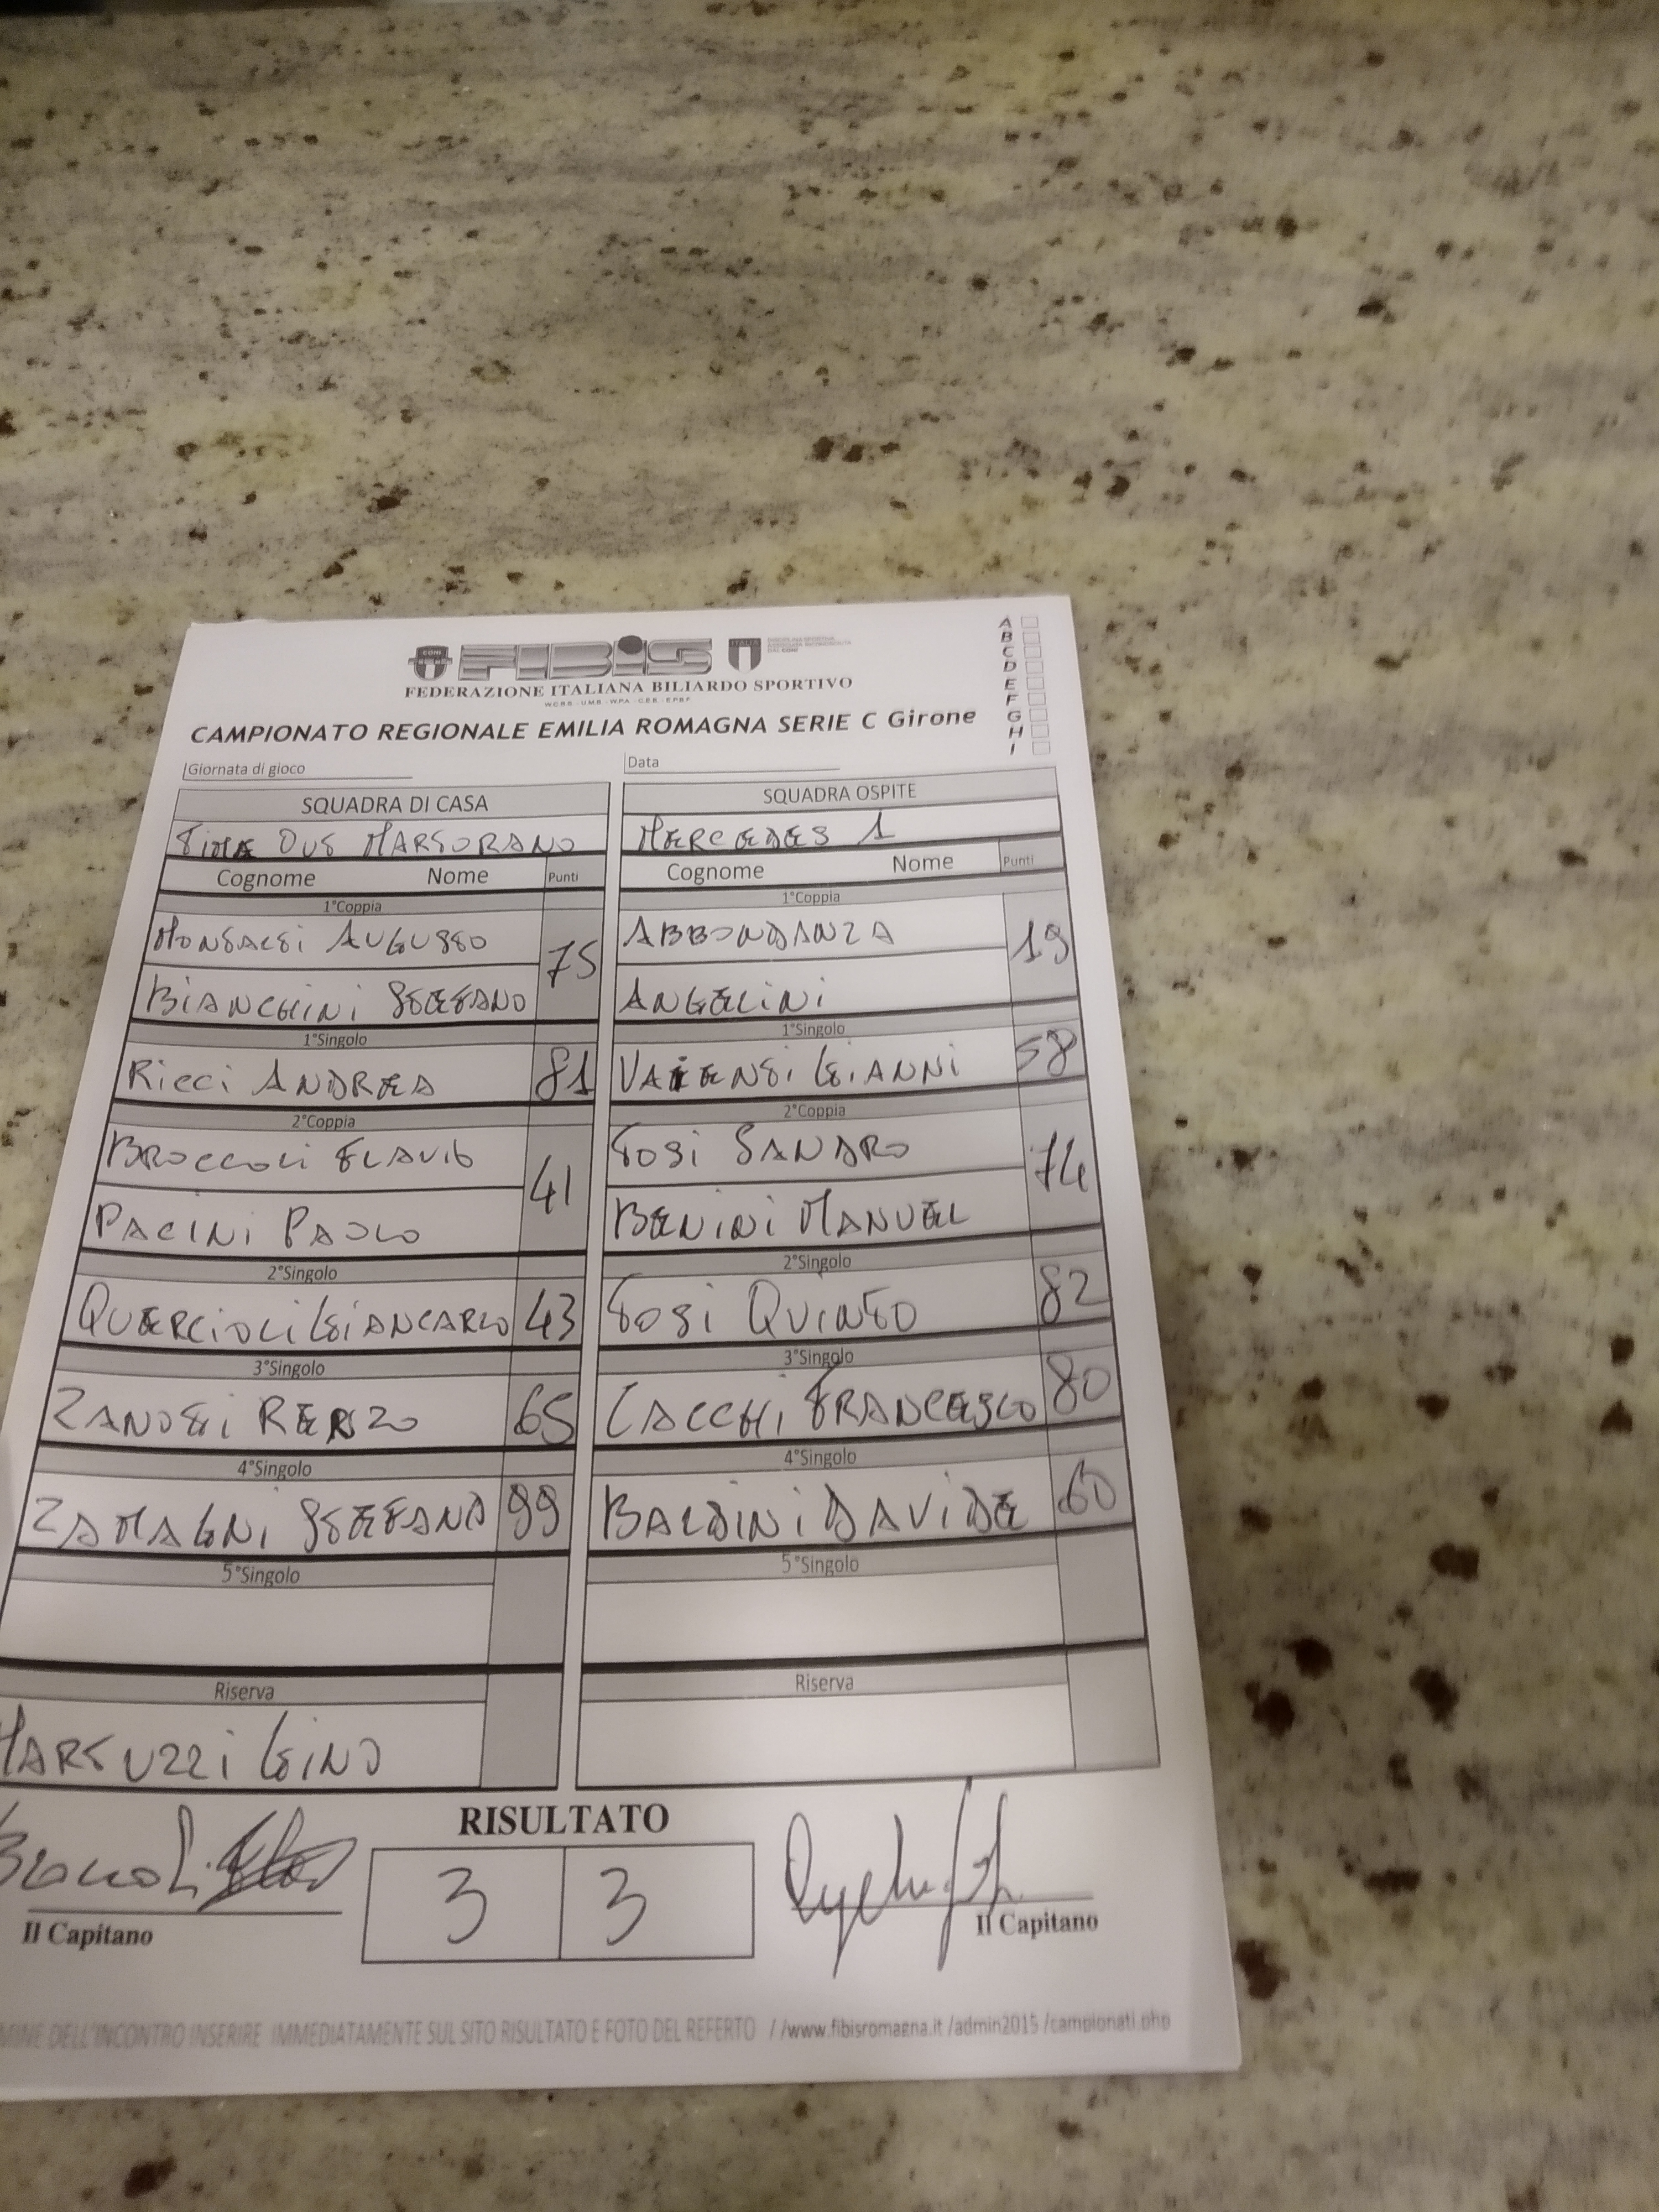 CONI
FIBIS
ITALIA
FEDERAZIONE ITALIANA BILIARDO SPORTIVO
CAMPIONATO REGIONALE EMILIA ROMAGNA SERIE C Girone
A
B
C
D
E
F
G
H
I
Giornata di gioco
Data
SQUADRA DI CASA
SQUADRA OSPITE
TIME OUT MARTORANO
MERCEDES 1
Cognome Nome Punti
Cognome Nome Punti
1°Coppia
1°Coppia
MONTALTI AUGUSTO 75
ABBONDANZA 19
BIANCHINI STEFANO
ANGELINI
1°Singolo
1°Singolo
RICCI ANDREA 81
GIANNI 58
2°Coppia
2°Coppia
BROCCOLI FLAVIO 41
TOSI SANDRO 74
PACINI PAOLO
BENINI MANUEL
2°Singolo
2°Singolo
QUERCIOLI GIANCARLO 43
TOSI QUINTO 82
3°Singolo
3°Singolo
ZANOTTI RENZO 65
CACCHI FRANCESCO 80
4°Singolo
4°Singolo
ZAMAGNI STEFANO 99
BALDINI DAVIDE 60
5°Singolo
5°Singolo
Riserva
Riserva
MARTUZZI GINO
RISULTATO
3 3
Il Capitano
Il Capitano
DELL'INCONTRO INSERIRE IMMEDIATAMENTE SUL SITO RISULTATO E FOTO DEL REFERTO //www.fibisromagna.it /admin2015 /campionati.php